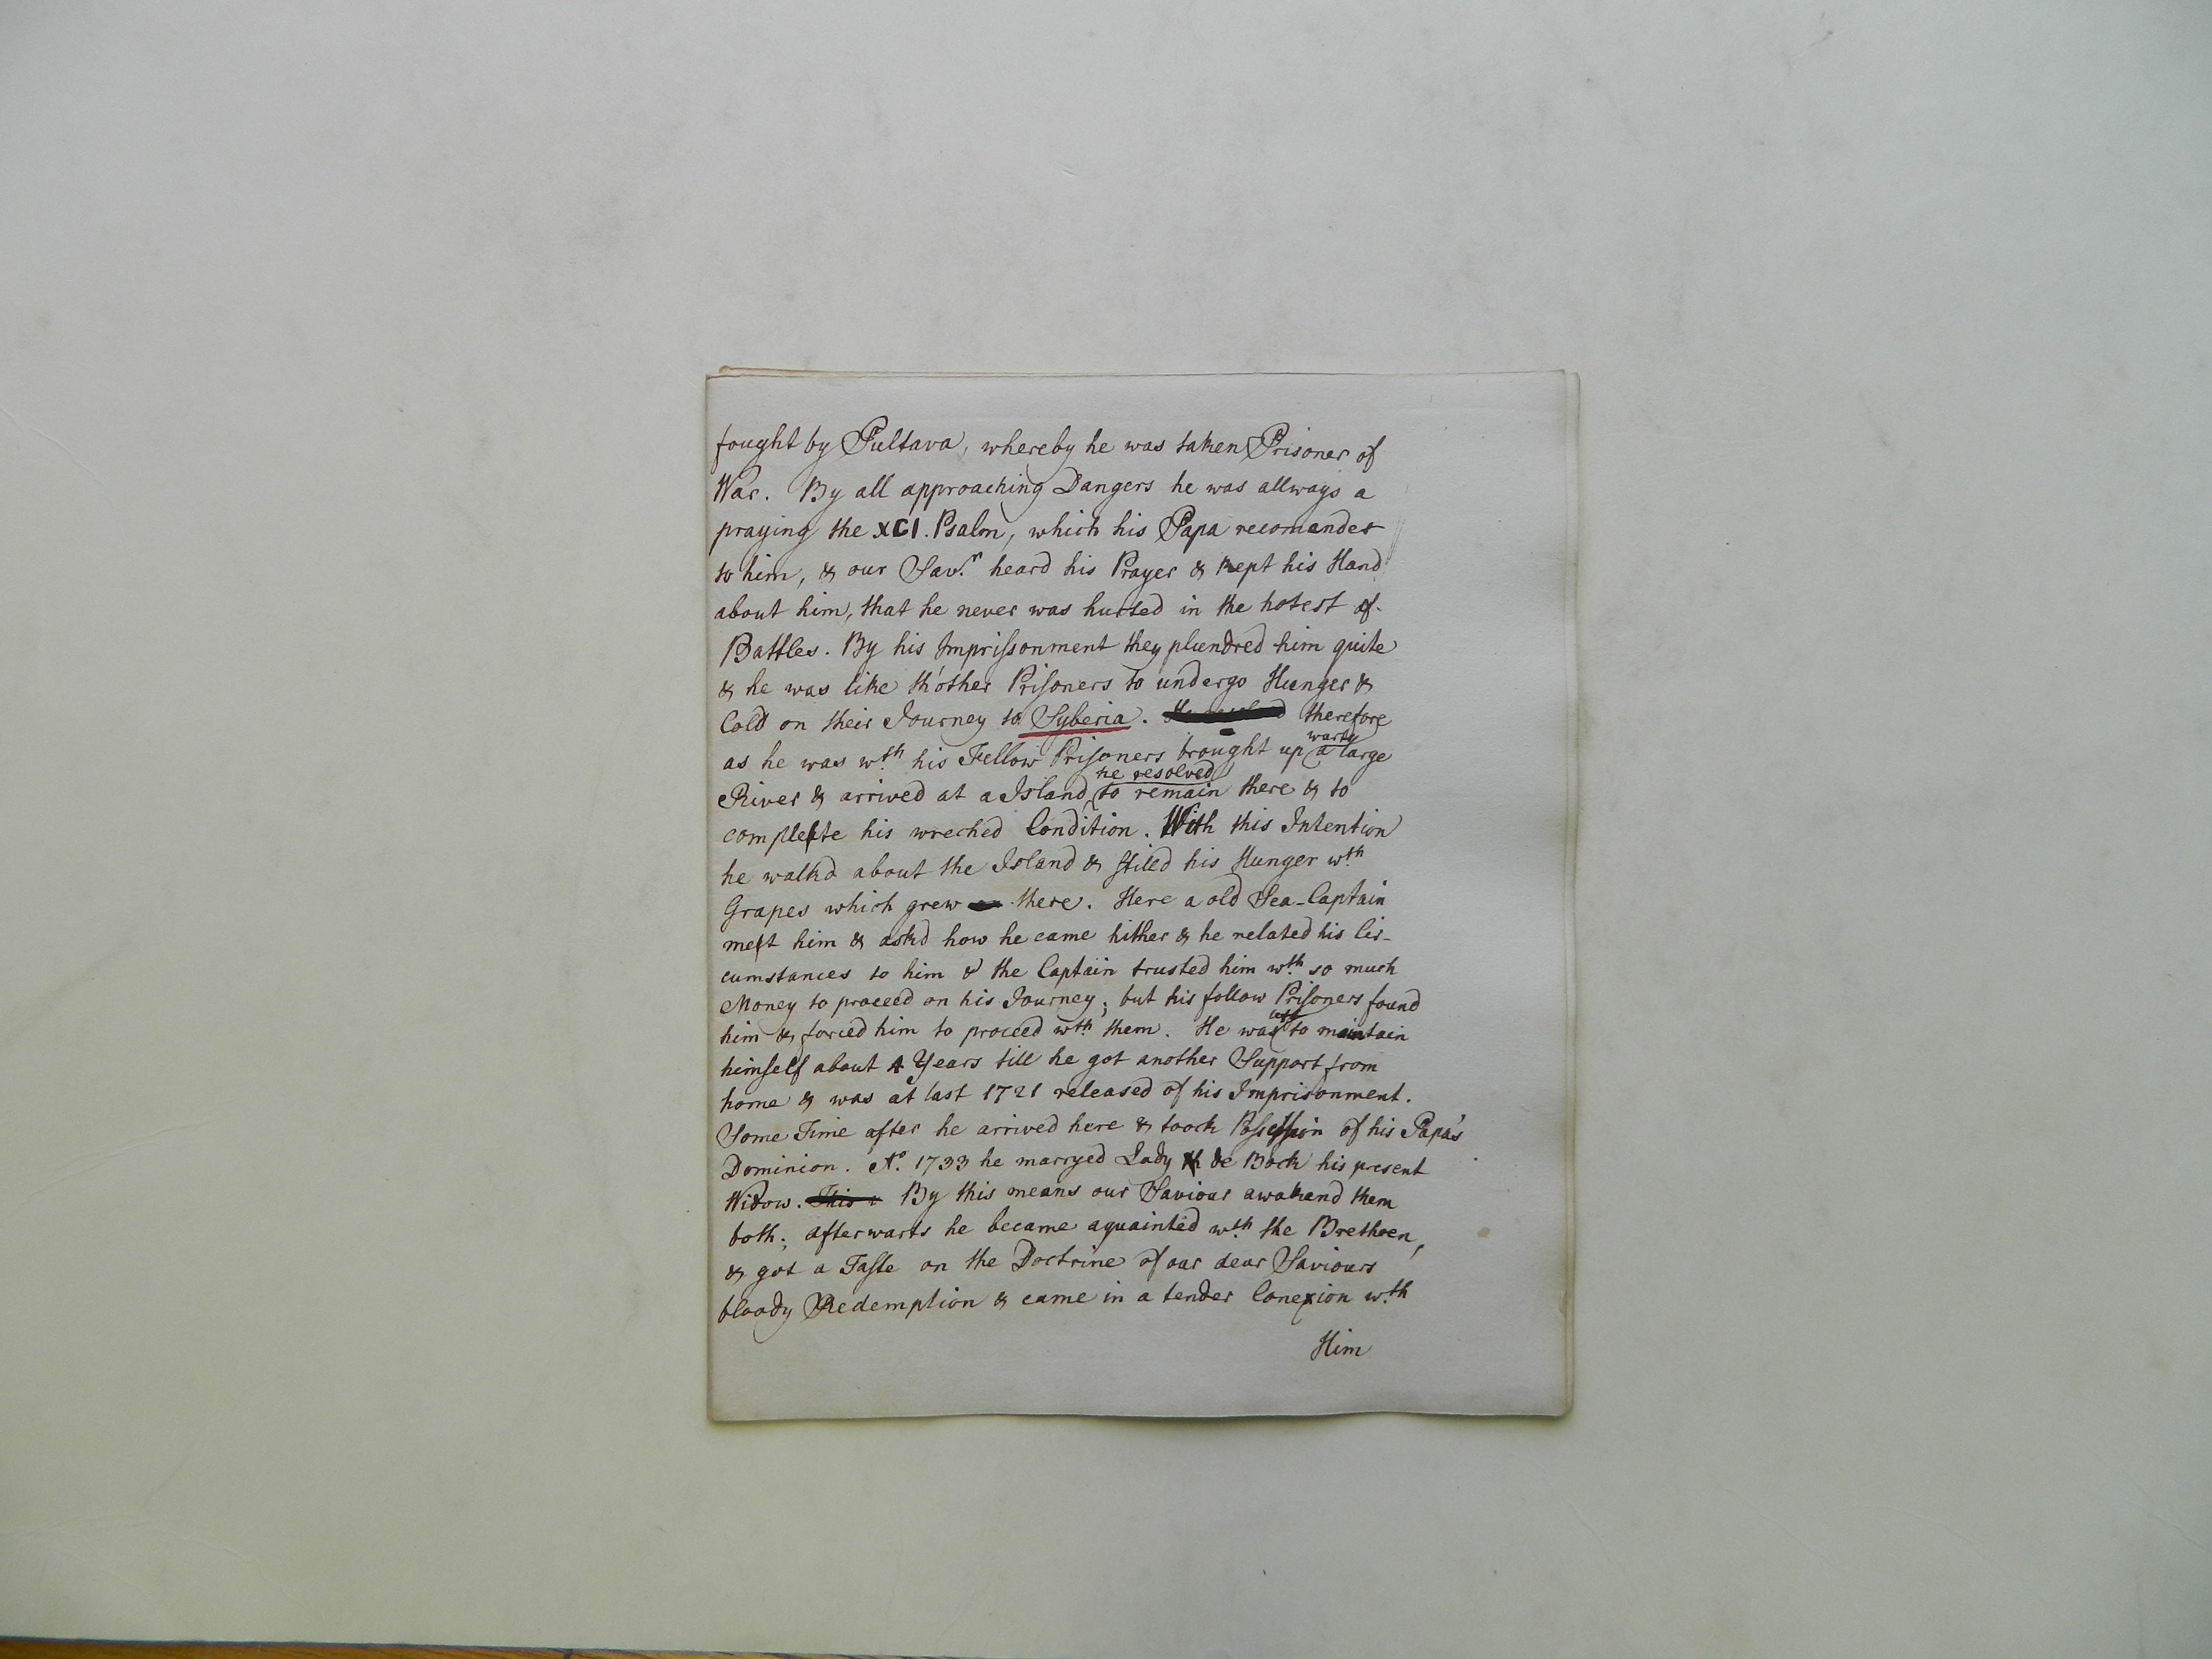 fought by Pultava, whereby he was taken Prisoner of
War. By all approaching Dangers he was allways a
praying the XCI. Psalm, which his Papa recomandet
to him, & our Savr. heard his Prayer & kept his Hand
about him, that he never was hurted in the hotest of
Battles. By his Imprissonment they plundred him quite
& he was like th'other Prisoners to undergo Hunger &
Cold on their Journey to Syberia. therefore
as he was wth. his Fellow Prisoners brought up warts a large
River & arrived at a Island, he resolved to remain there & to
complete his wreched Condition. With this Intention
he walkd about the Island & stiled his Hunger wth
Grapes which grew there. Here a old Sea-Captain
met him & askd how he came hither & he related his Cir-
cumstances to him & the Captain trusted him wth. so much
Money to proceed on his Journey; but his follow Prisoners found
him & forced him to proceed wth. them. He was to maintain
himself about 4 Years till he got another Support from
home & was at last 1721 released of his Imprisonment.
Some Time after he arrived here & toock Possession of his Papa's
Dominion. Ao. 1733 he marryed Lady de Bock his present
Widow. This By this means our Saviour awakend them
both; afterwarts he became aquainted wth. the Brethren,
& got a Taste on the Doctrine of our dear Saviours
bloody Redemption & came in a tender Conexion wth.
Him